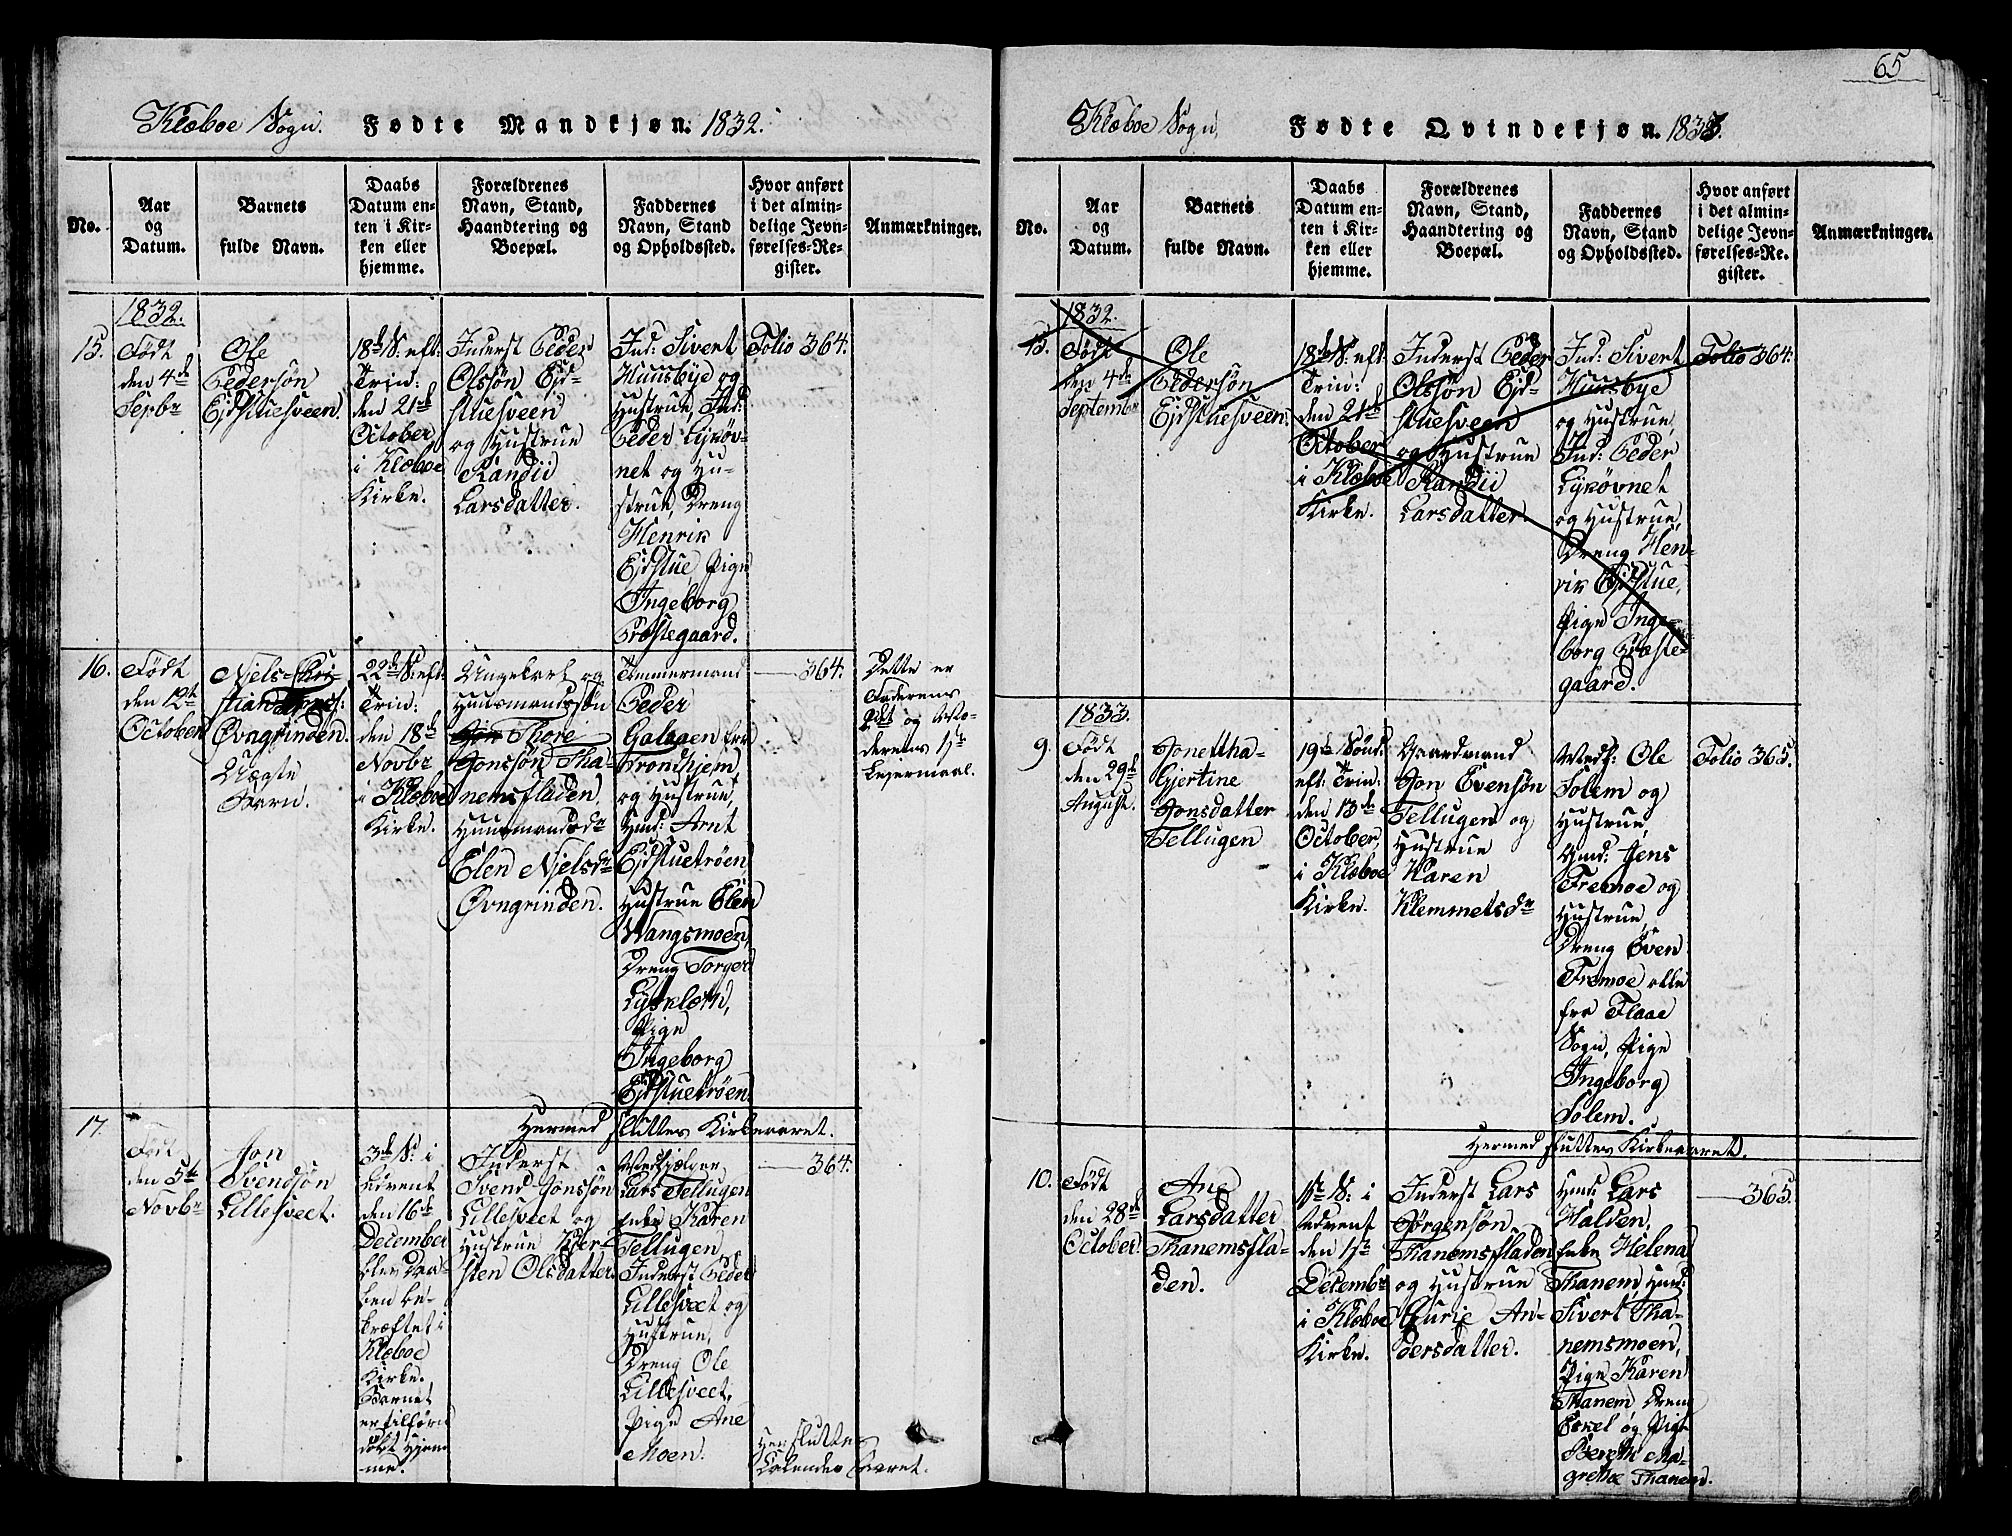 65
Klæboe Sogn. Fødte Mandkjøn. 1832.
No.
Aar
og
Datum.
Barnets
fulde Navn.
Daabs
Datum en-
ten i Kir-
ken eller
hjemme.
Forældrenes
Navn, Stand,
Haandtering og
Boepæl.
Faddernes
Navn, Stand
og Opholdssted.
Hvor anført
i det almin-
delige Jevn-
førelses-Re-
gister.
Anmærkninger.
1832.
15.
Født
den 4de
Septbr
Ole
Pedersøn
Ejdstuesveen.
18de S: eft:
Trin:
den 21de
October
i Klæboe
Kirke.
Inderst Peder
Olssøn Ejd-
stuesveen
og Hustrue
Randii
Larsdatter.
Ind: Sivert
Huusbye og
Hustrue, Ind:
Peder Lysøv-
net og Hu-
strue, Dreng
Henrik
Ejdstue, Pige
Ingeborg
Præstegaard.
Folio 364.
16.
Født
den 12te
October
Niels-Kri-
stian
Øvngrinden.
Uægte
Barn.
22de S: eft:
Trin:
den 18de
Novbr
i Klæboe
Kirke.
Ungekarl og
Huusmandssøn
Thore
Jonssøn Tha-
nemsfladen,
Huusmandsdr
Elen Nielsdr
Øvngrinden.
Tømmermand
Peder
Galaaen fra
Trondhjem
og Hustrue,
Hmd: Arnt
Ejdstuetrøen,
Hustrue Elen
Vangsmoen,
Dreng Torger
Lysklætt,
Pige
Ingeborg
Ejdstuetrøen.
364.
Dette er
Faderens
2det og Mo-
derens 1ste
Lejermaal.
Hermed sluttes Kirkeaaret.
17.
Født
den 5te
Novbr
Jon
Svendsøn
Lillesveet.
3de S: i
Advent
den 16de
December
blev Daa-
ben be-
kræftet i
Klæboe
Kirke.
Barnet
er tilførn
døbt hjem-
me.
Inderst
Svend Jonssøn
Lillesveet og
Hustrue Kjer-
sten Olsdatter.
Medhjælper
Lars Tellugen
Enke Karen
Tellugen,
Inderst Peder
Lillesveet og
Hustrue,
Dreng Ole
Lillesveet,
Pige Ane
Moen.
364.
Her sluttes
Calender Aaret.
Klæboe Sogn. Fødte Qvindekjøn. 1833.
No.
Aar
og
Datum.
Barnets
fulde Navn.
Daabs
Datum en-
ten i Kir-
ken eller
hjemme.
Forældrenes
Navn, Stand,
Haandtering og
Boepæl.
Faddernes
Navn, Stand
og Opholdssted.
Hvor anført
i det almin-
delige Jevn-
førelses-Re-
gister.
Anmærkninger.
1832.
15.
Født
den 4de
Septembr
Ole
Pedersøn
Ejdstuesveen.
18de S: eft:
Trin:
den 21de
October
i Klæboe
Kirke.
Inderst Peder
Olssøn Ejd-
stuesveen
og Hustrue
Randii
Larsdatter
Ind: Sivert
Huusbye
og Hustrue,
Ind: Peder
Lysøvnet
og Hustrue,
Dreng Hen-
rik Ejdstue,
Pige Inge-
borg Præste-
gaard.
Folio 364.
1833.
9.
Født
den 29de
August.
Jonettha-
Gjertine
Jonsdatter
Tellugen
19de Sønd:
eft: Trin:
den 13de
October,
i Klæboe
Kirke.
Gaardmand
Jon Evensøn
Tellugen og
Hustrue
Karen
Klemmetsdr
Medh: Ole
Solem og
Hustrue,
Gmd: Jens
Fremoe og
Hustrue,
Dreng Even
Fremoe alle
fra Flaae
Sogn, Pige
Ingeborg
Solem.
Folio 365.
Hermed sluttes Kirkeaaret.
10.
Født
den 28de
October.
Ane
Larsdatter
Thanemsfla-
den.
1ste S: i
Advent
den 1ste
Decembr
i Klæboe
Kirke.
Inderst Lars
Jørgensøn
Thanemsfladen
og Hustrue
Gurie An-
dersdatter.
Hmd: Lars
Halsen,
Enke Helena
Thanem, Hmd:
Sivert Tha-
nemsmoen,
Pige Karen
Thanem, Dreng
Eskel og Pige
Bereth Ma-
grethe Thanem.
365.